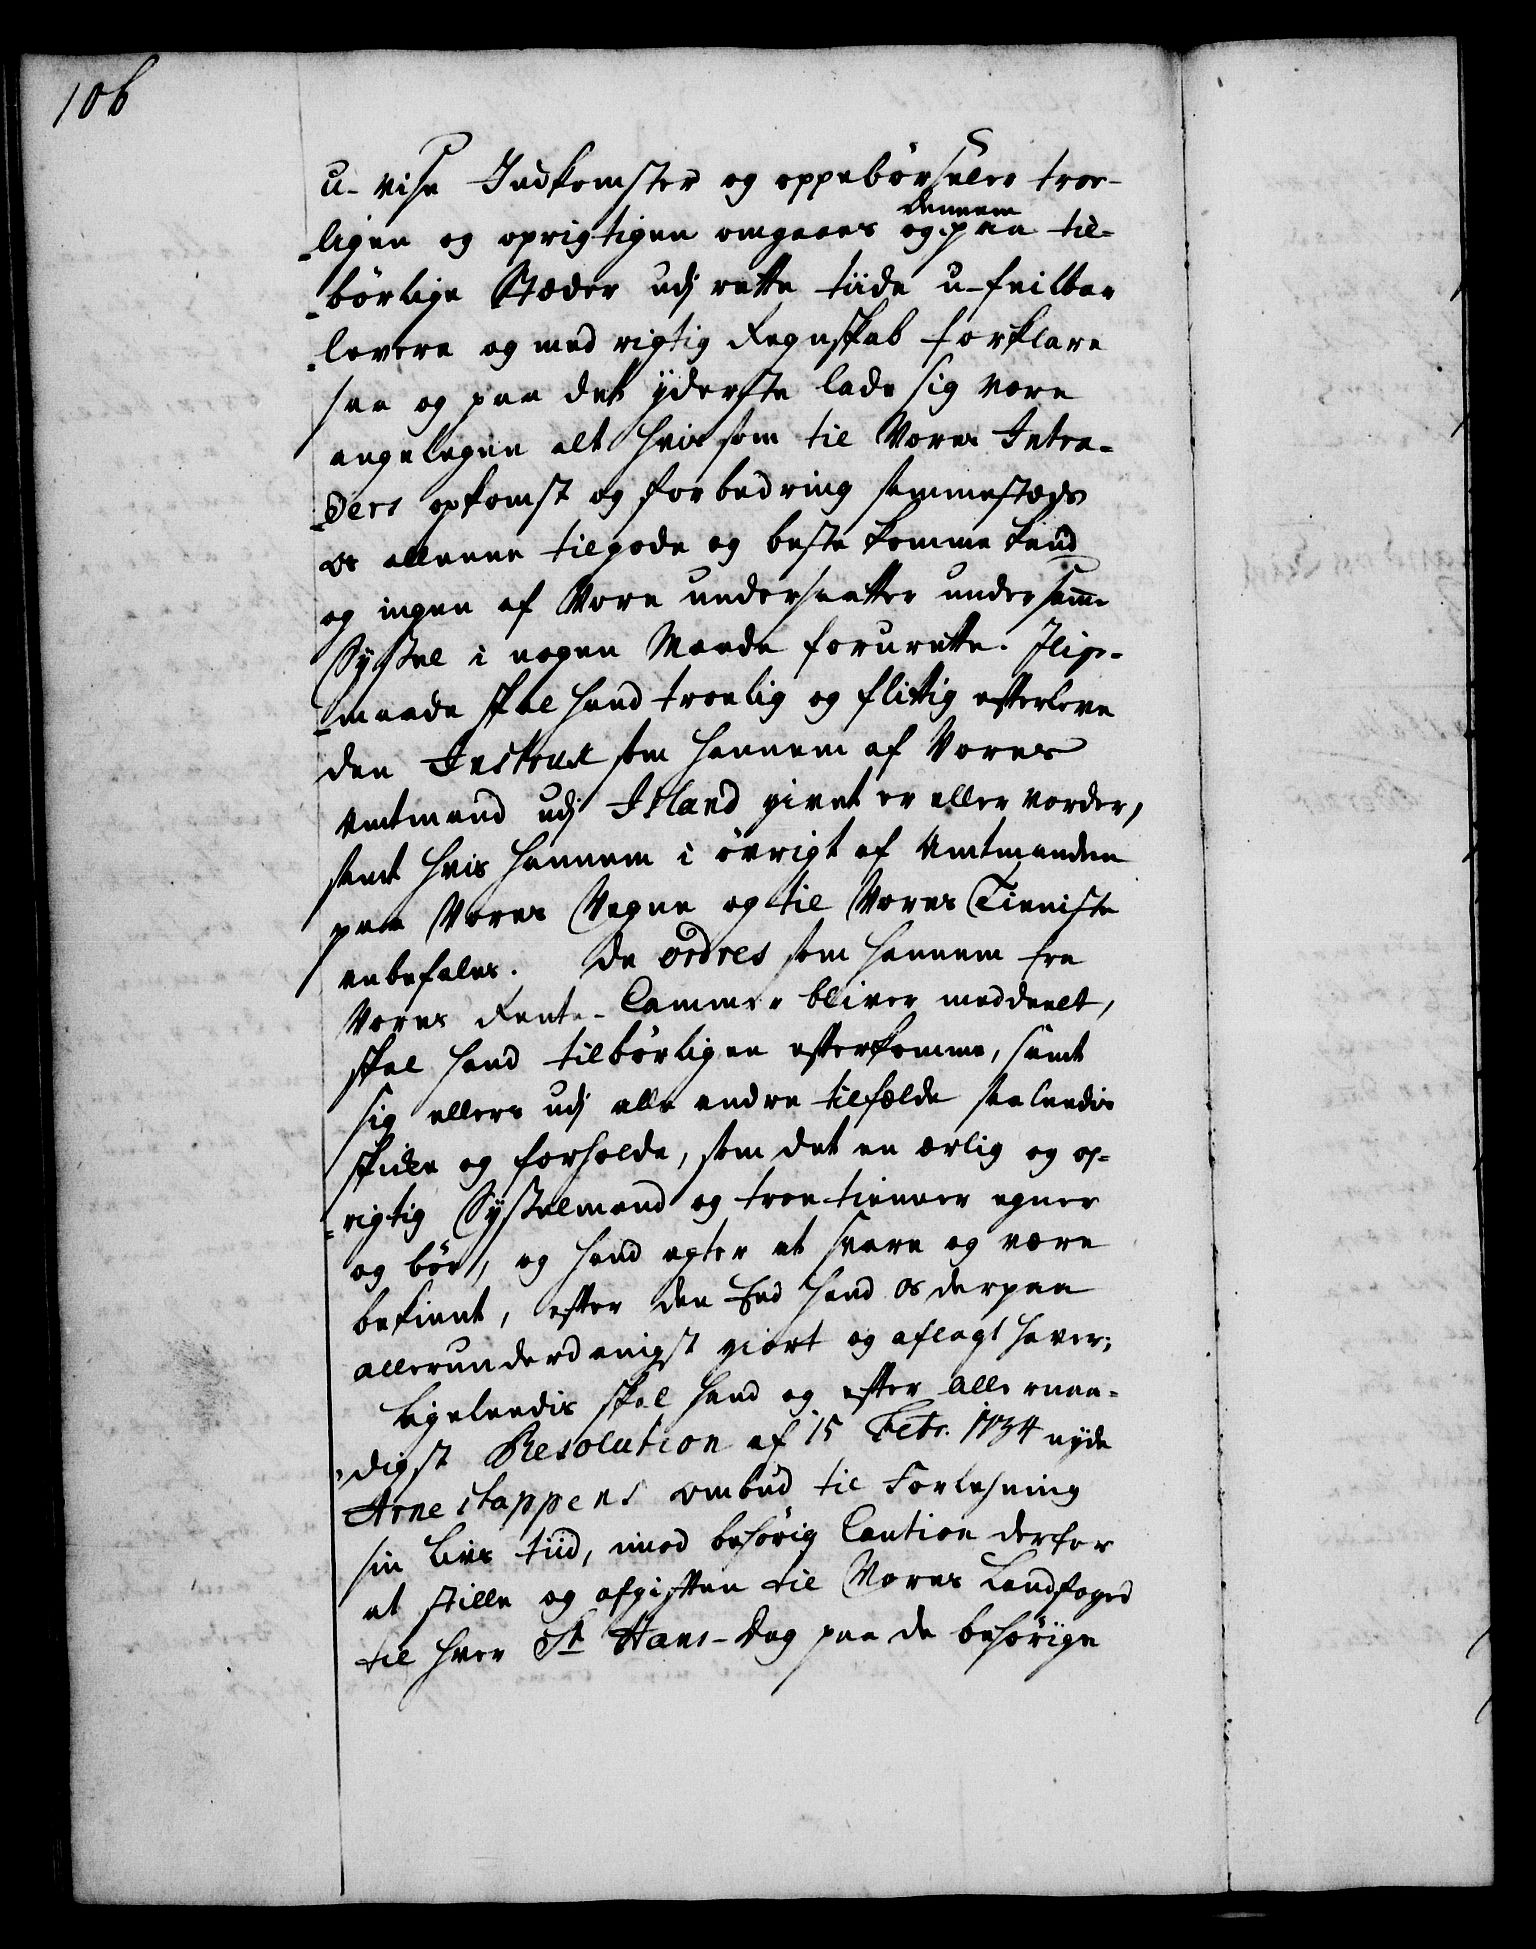 106
u-vise Indkomster og oppebörseler troe-
ligen og oprigtigen omgaaes og dennem paa til-
börlige Stæder udj rette tiide u-feilbar
levere og med rigtig Regnskab forklare
saa og paa det yderste lade sig være
angelegen alt hvis som til Vores Intra-
ders opkomst og forbedring sammestæds
os alleene tilgode og beste komme kand
og ingen af Vore undersaatter under samme
Syssel i nogen Maade forurette. Ilige-
maade skal hand troelig og flittig efterleve
den Instrux som hannem af Vores
Amtmand udj Island givet er eller vorder,
samt hvis hannem i övrigt af Amtmanden
paa Vores Vegne og til Vores Tieniste
anbefales. De ordres som hannem fra
Vores Rente-Cammer bliver meddeelt,
skal hand tilbörligen efterkomme, samt
sig ellers udj alle andre tilfælde saaledis
skicke og forholde, som det en ærlig og op-
rigtig Sysselmand og troe tienner egner
og bör, og hand agter at svare og være
bekient, efter den Eed hand os derpaa
allerunderdanigst giort og aflagt haver;
Ligeleedis skal hand og efter allernaa-
digst Resolution af 15 Febr. 1734 nyde
Arne stappens ombud til Forlehning
sin Livs tiid, imod behörig Caution derfor
at stille og afgiften til Vores Landfoged
til hver St Hans-Dag paa de behörige